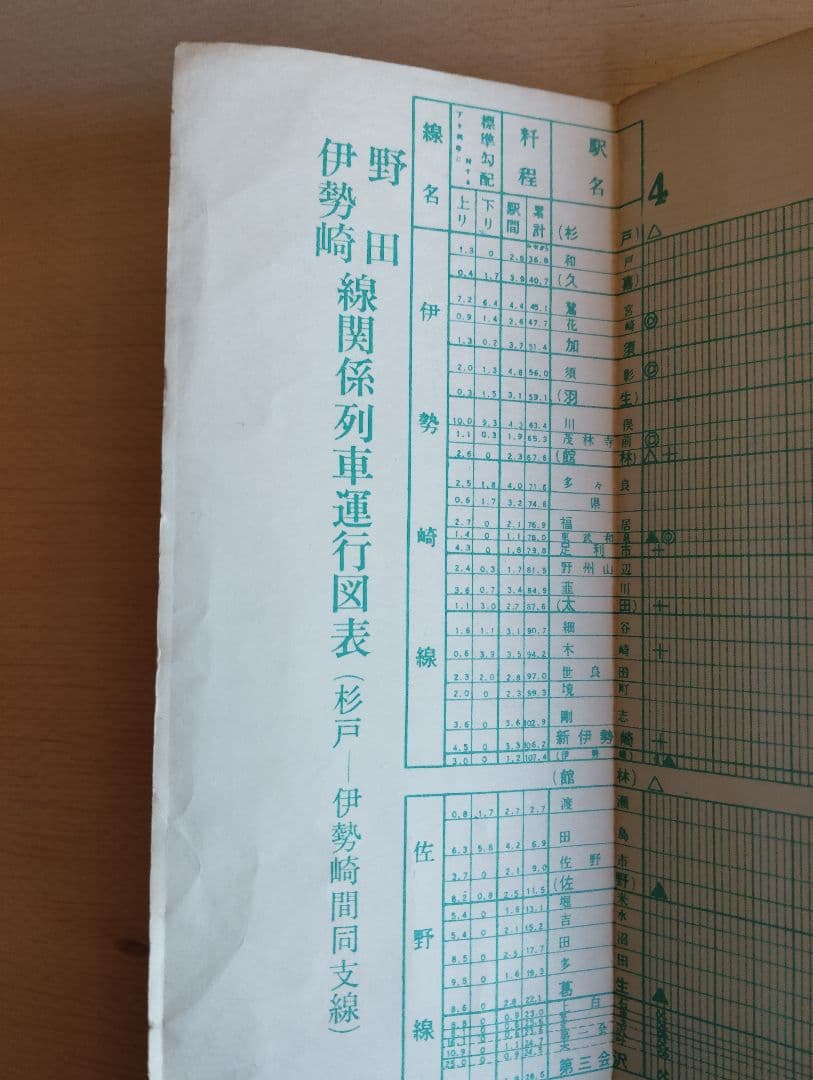 野田
伊勢崎
線関係列車運行図表(杉戸—伊勢崎間同支線)
線名 標準勾配 粁程 駅名
上り 下り 駅間 累計
4
伊勢崎線
(杉戸) △
1.3 0 2.8 36.8 和戸
0.4 1.7 3.9 40.7 (久喜)
7.2 6.4 4.4 45.1 鷲宮
0.9 1.4 2.6 47.7 花崎 ◎
1.3 0.2 3.7 51.4 加須
2.0 1.3 4.6 56.0 須影 ◎
0.3 1.5 3.1 59.1 (羽生)
10.0 9.3 4.3 63.4 川俣
1.1 0.3 1.9 65.3 茂林寺前 ◎
2.6 0 2.3 67.6 (館林) △ +
2.5 1.8 4.0 71.6 多々良
0.6 1.7 3.2 74.8 県
2.7 0 2.1 76.9 福居
1.4 0 1.1 78.0 東武和泉 ▲ ◎
4.3 0 1.8 79.8 足利市 +
2.4 0.3 1.7 81.5 野州山辺
3.6 0.7 3.4 84.9 韮川
1.1 3.0 2.7 87.6 (太田) +
1.6 1.1 3.1 90.7 細谷
0.6 3.9 3.5 94.2 木崎 +
2.3 2.0 2.8 97.0 世良田
2.0 0 2.3 99.3 境町
3.6 0 3.6 102.9 剛志
4.5 0 3.3 106.2 新伊勢崎 +
3.0 0 1.2 107.4 (伊勢崎) ▲
佐野線
(館林) △
0.8 1.7 2.7 2.7 渡瀬
6.3 5.8 4.2 6.9 田島
3.7 0 2.1 9.0 佐野市
8.2 0.8 2.5 11.5 (佐野) ▲
5.4 0 1.6 13.1 堀米
5.4 0 2.1 15.2 吉水
8.5 0 2.5 17.7 田沼
9.5 0 1.6 19.3 多田
8.6 0 2.8 22.1 葛生 ▲
第三会沢